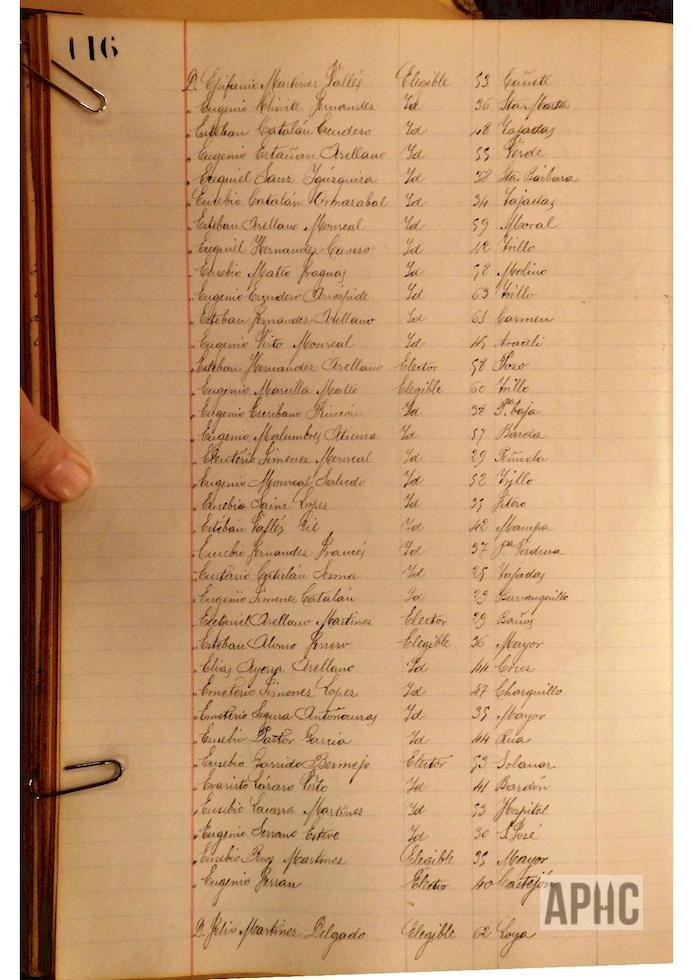 116
D. Epifanio Martinez Vallés Elegible 53 Cañete
" Eugenio Chivite Fernandez Id 36 Sta Marta
" Esteban Catalán Escudero Id 48 Tajadas
" Eugenio Estañan Arellano Id 55 Verde
" Ezequiel Sanz Yguzquiza Id 38 Sta. Bárbara
" Eusebio Catalán Ormarabal Id 34 Tajadas
" Esteban Arellano Monreal Id 59 Moral
" Ezequiel Hernandez Cavero Id 42 Trillo
" Eusebio Mateo Fraguas Id Molino
" Eugenio Escudero Id 63 Trillo
" Esteban Fernandez Arellano Id 63 Carmen
" Eugenio Virto Monreal Id 45 Araceli
" Esteban Hernandez Arellano Elector 58 Pozo
" Eugenio Marcilla Mateo Elegible 60 Trillo
" Eugenio Escribano Rincón Id 38 Pª baja
" Eugenio Malumbres Atienza Id 57 Barda
" Eleuterio Jimenez Monreal Id 29
" Eugenio Monreal Salcedo Id 52 Trillo
" Eusebio Sainz Lopez Id 35 Fitero
" Esteban Vallés Gil Id 42 Mampa
" Eusebio Fernandez Francés Id 37 Pª Verdura
" Eustasio Catalán Sesma Id 25 Tajadas
" Eugenio Jimenez Catalán Id 29 Barranquillo
" Ezequiel Arellano Martinez Elector 29 Baños
" Esteban Alonso Forrero Elegible 36 Mayor
" Elias Ayensa Arellano Id 44 Cruz
" Emeterio Jimenez Lopez Id 47 Charquillo
" Emeterio Segura Antoñanzas Id 35 Mayor
" Eusebio Pastor Garcia Id 44 Rua
" Eusebio Garrido Bermejo Elector 53 Solanar
" Evaristo Lázaro Virto Id 41 Bardón
" Eusebio Lacarra Martinez Id 53 Hospital
" Eugenio Serrano Esteve Id 30 S. José
" Eusebio Ruiz Martinez Elegible 35 Mayor
" Eugenio Ferran Elector 40 Castejón
D. Felix Martinez Delgado Elegible 62 Loya
APHC